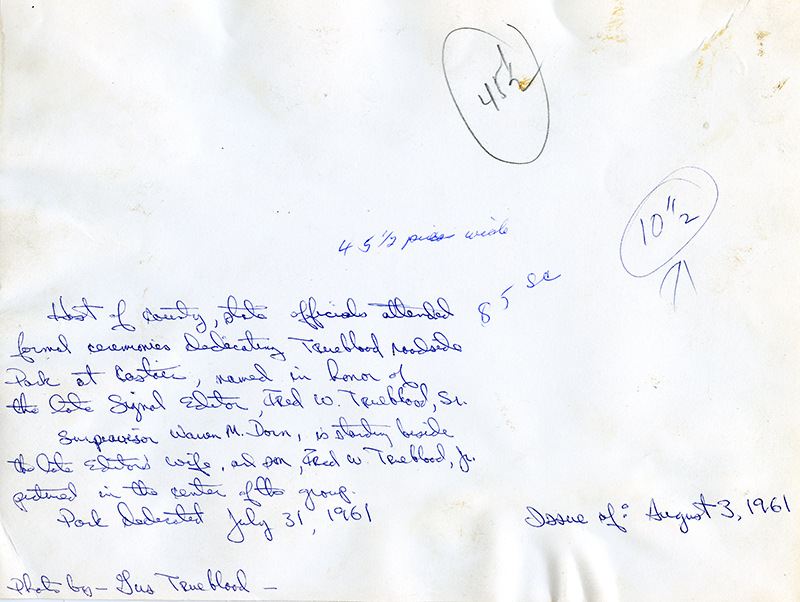 45½
45 1/2 picas wide
10"½
85 sc
Host of County, state officials attended
formal ceremonies dedicating Trueblood roadside
Park at Castaic, named in honor of
the late Signal Editor, Fred W. Trueblood, Sr.
Surpravisor Warren M. Dorn, is standing beside
the late Editors' wife, and son, Fred W. Trueblood, Jr.
pictured in the center of the group.
Park Dedicated July 31, 1961
Issue of: August 3, 1961
Photo by - Gus Trueblood -